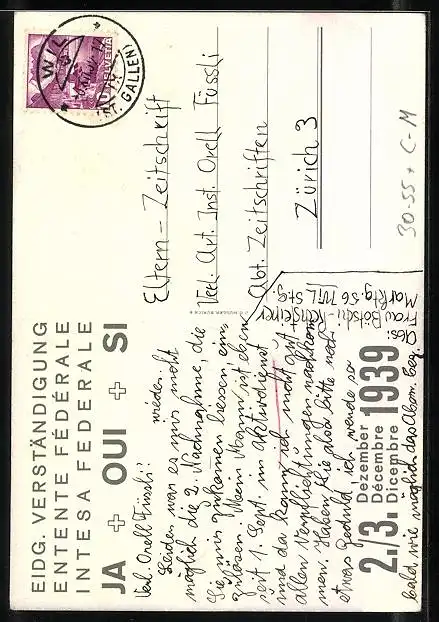 WIL
(ST. GALLEN)
HELVETIA
Eltern-Zeitschrift
Verl. Art. Inst. Orell Füssli
Abt. Zeitschriften
Zürich 3
30-55 + C-M
Abs:
Frau Bötschi-
Marktg. 56 WIL St. G.
EIDG. VERSTÄNDIGUNG
ENTENTE FÉDÉRALE
INTESA FEDERALE
JA + OUI + SI
2./3. Dezember
Décembre
Dicembre 1939
Verl. Orell Füssli!
Leider war es mir nicht
möglich die 2. Nachnahme, die
Sie mir wieder zukommen liessen, ein-
zulösen. Mein Mann ist eben
seit 1. Sept. im Aktivdienst
und da kann ich nicht gut
allen Verpflichtungen nachkom-
men. Haben Sie also bitte noch
etwas Geduld, ich werde so
bald wie möglich das Abonn. beg.